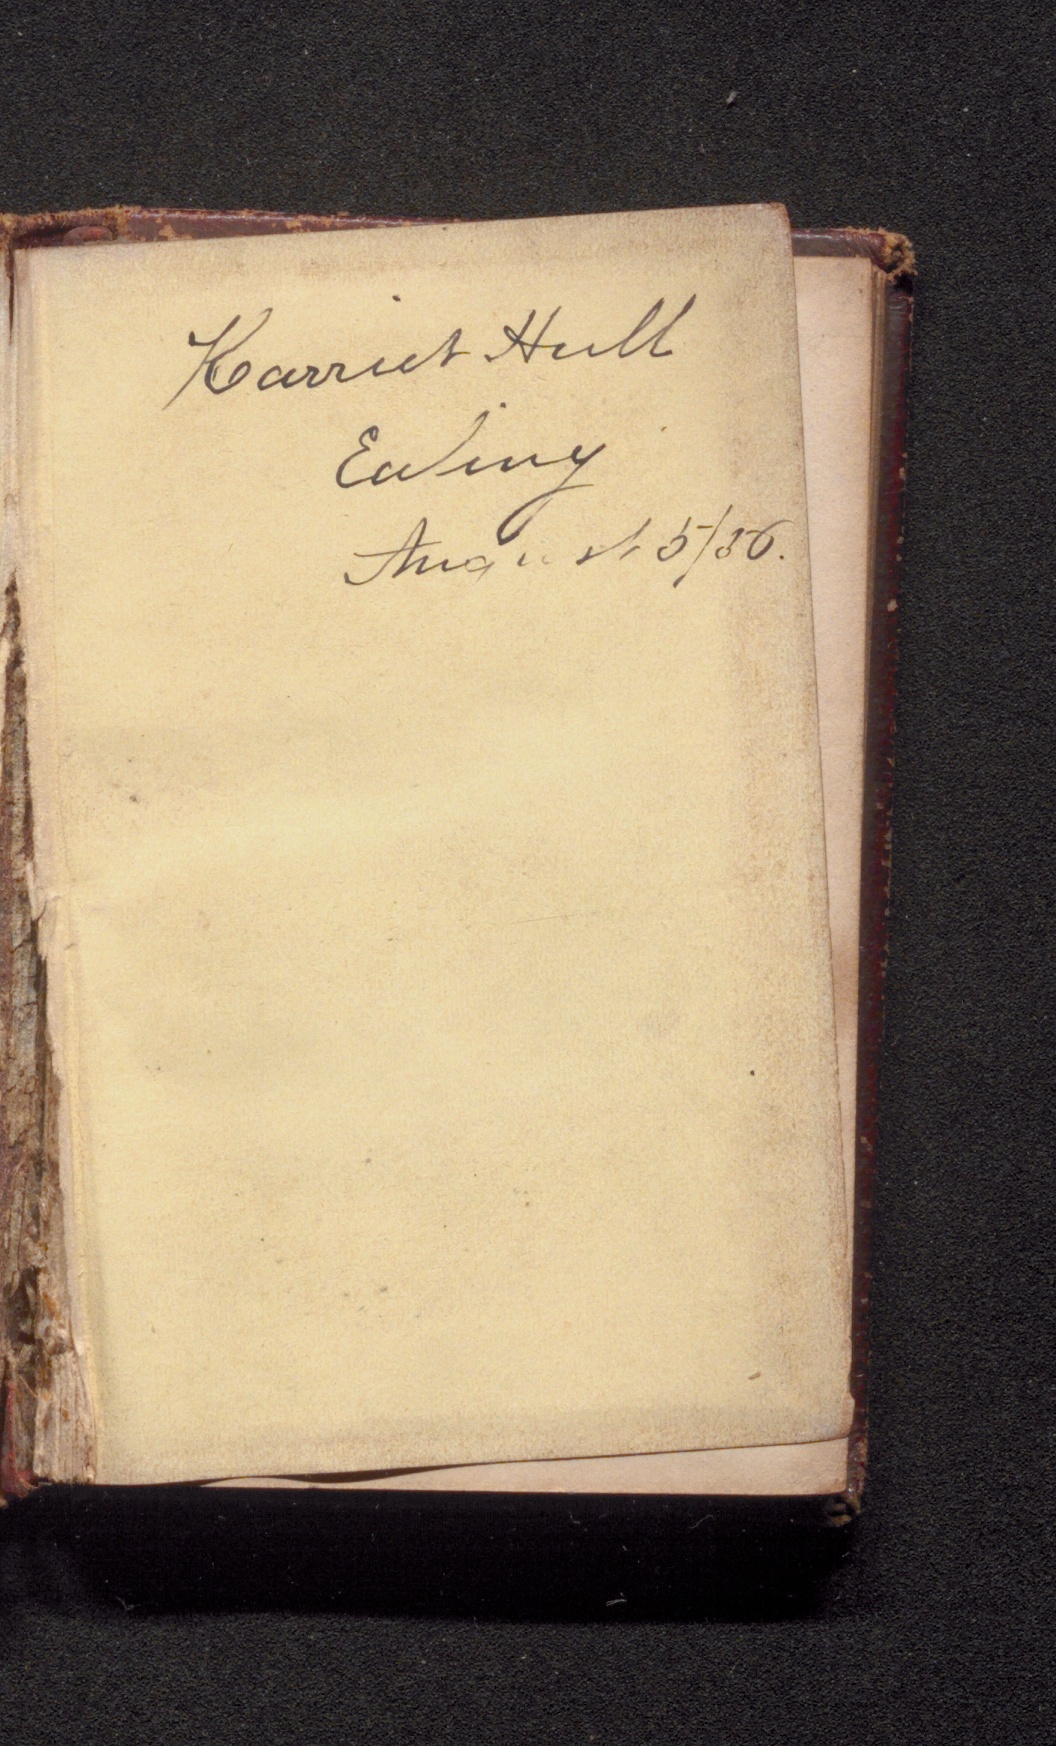 Harriet Hull
Ealing
August 5/86.